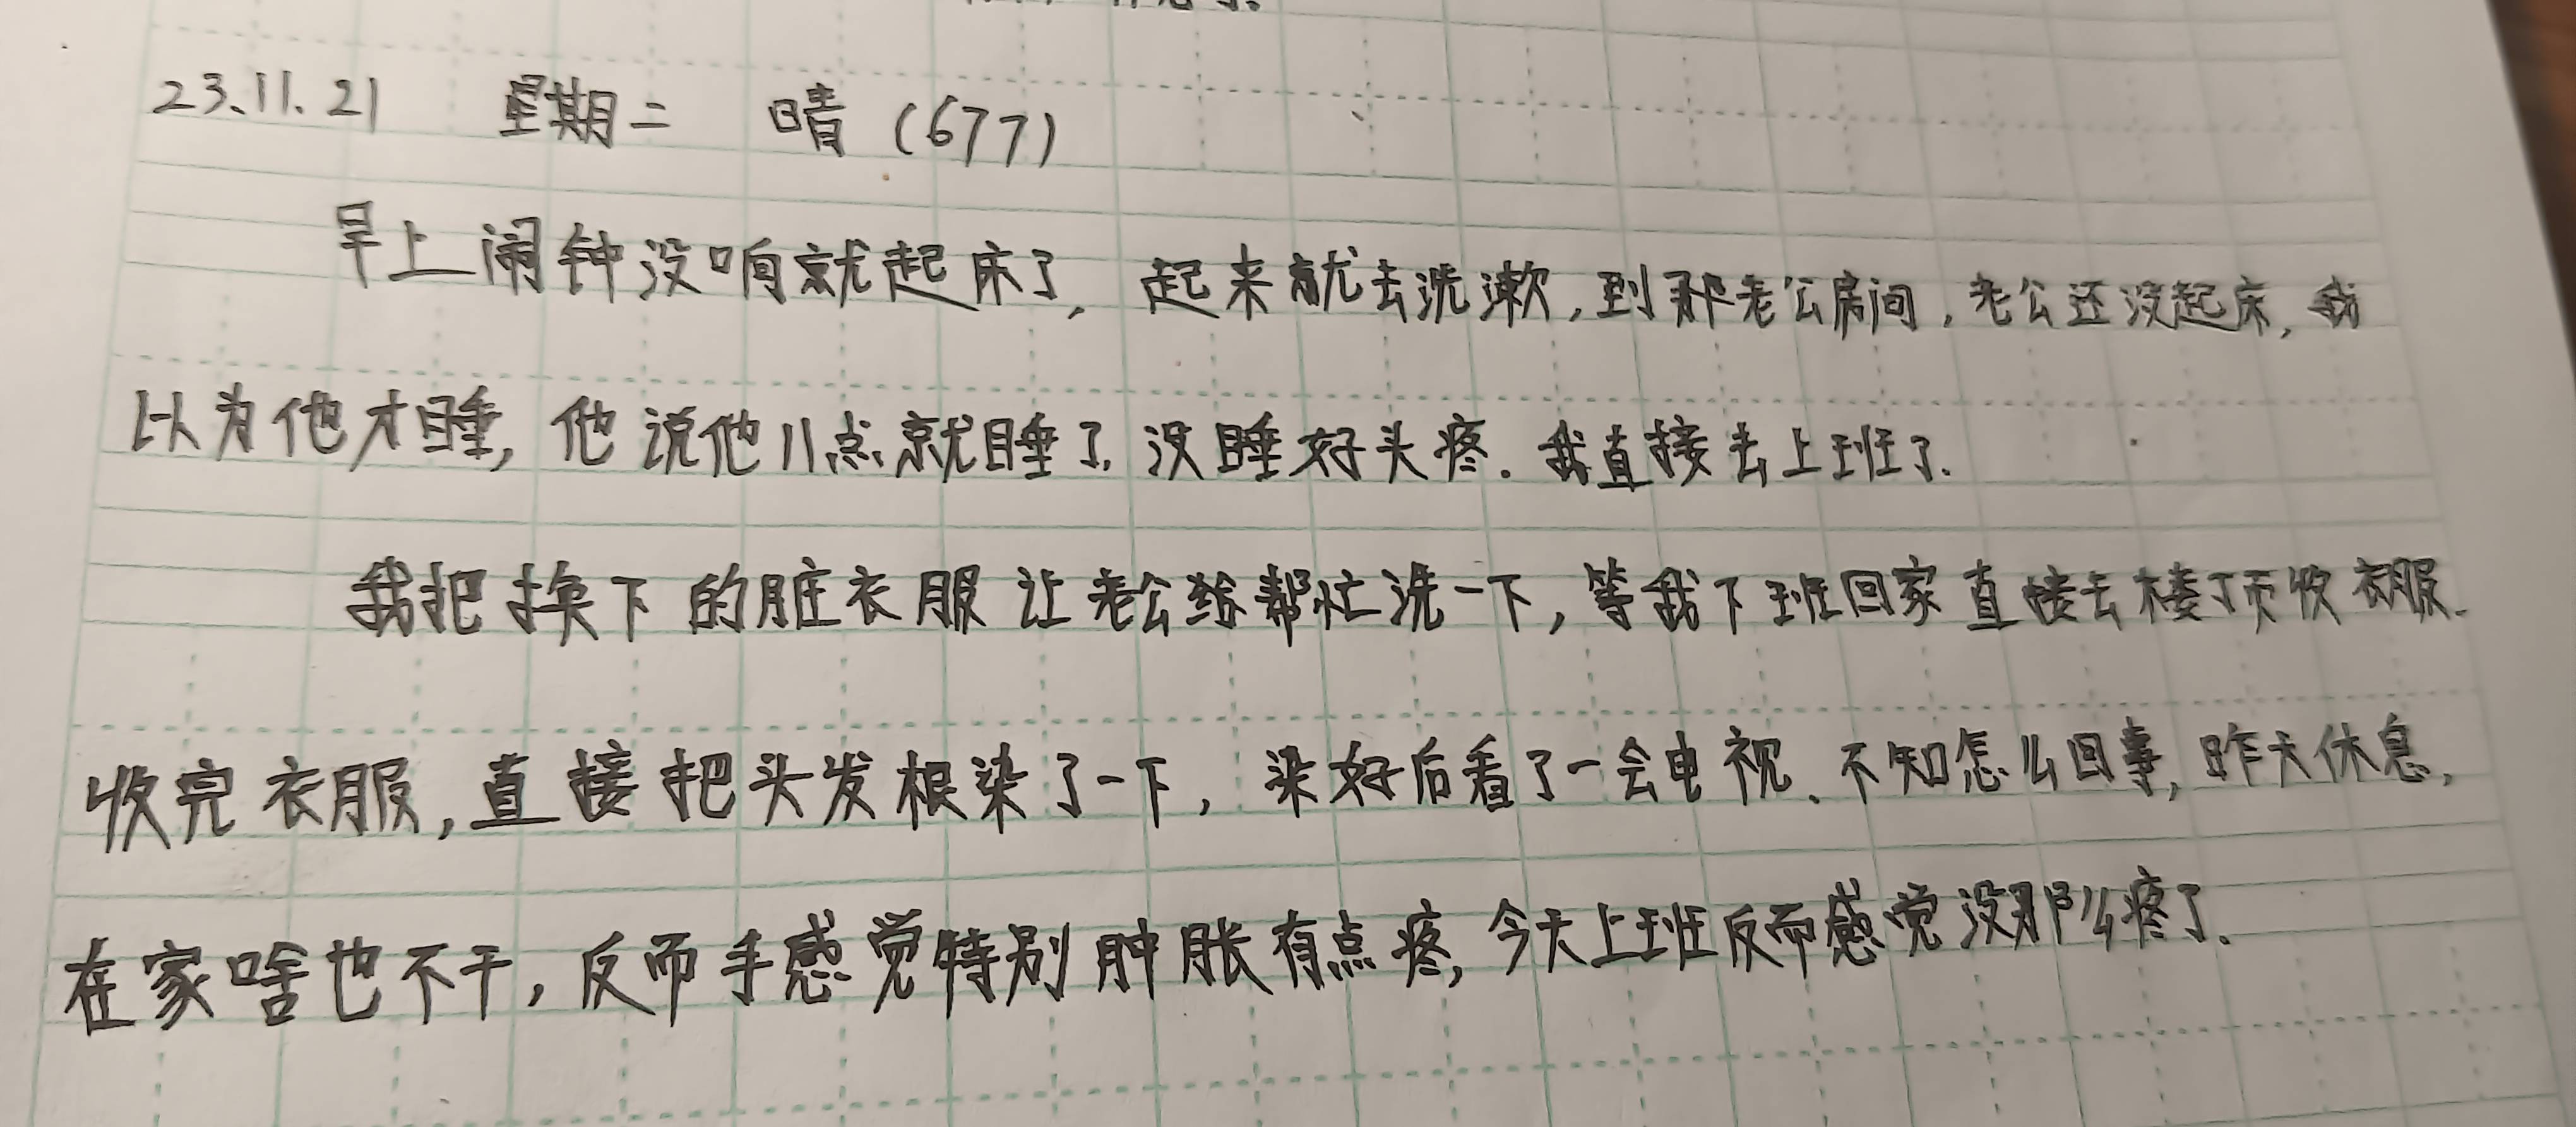 23.11.21 星期二 晴 (677)
早上闹钟没响就起床了, 起来就去洗漱, 到那老公房间, 老公还没起床, 我
以为他才睡, 他说他11点就睡了, 没睡好头疼. 我直接去上班了.
我把换下的脏衣服让老公给帮忙洗一下, 等我下班回家直接去楼顶收衣服.
收完衣服, 直接把头发根染了一下, 染好后看了一会电视、不知怎么回事, 昨天休息,
在家啥也不干, 反而手感觉特别肿胀有点疼, 今天上班反而感觉没那么疼了.